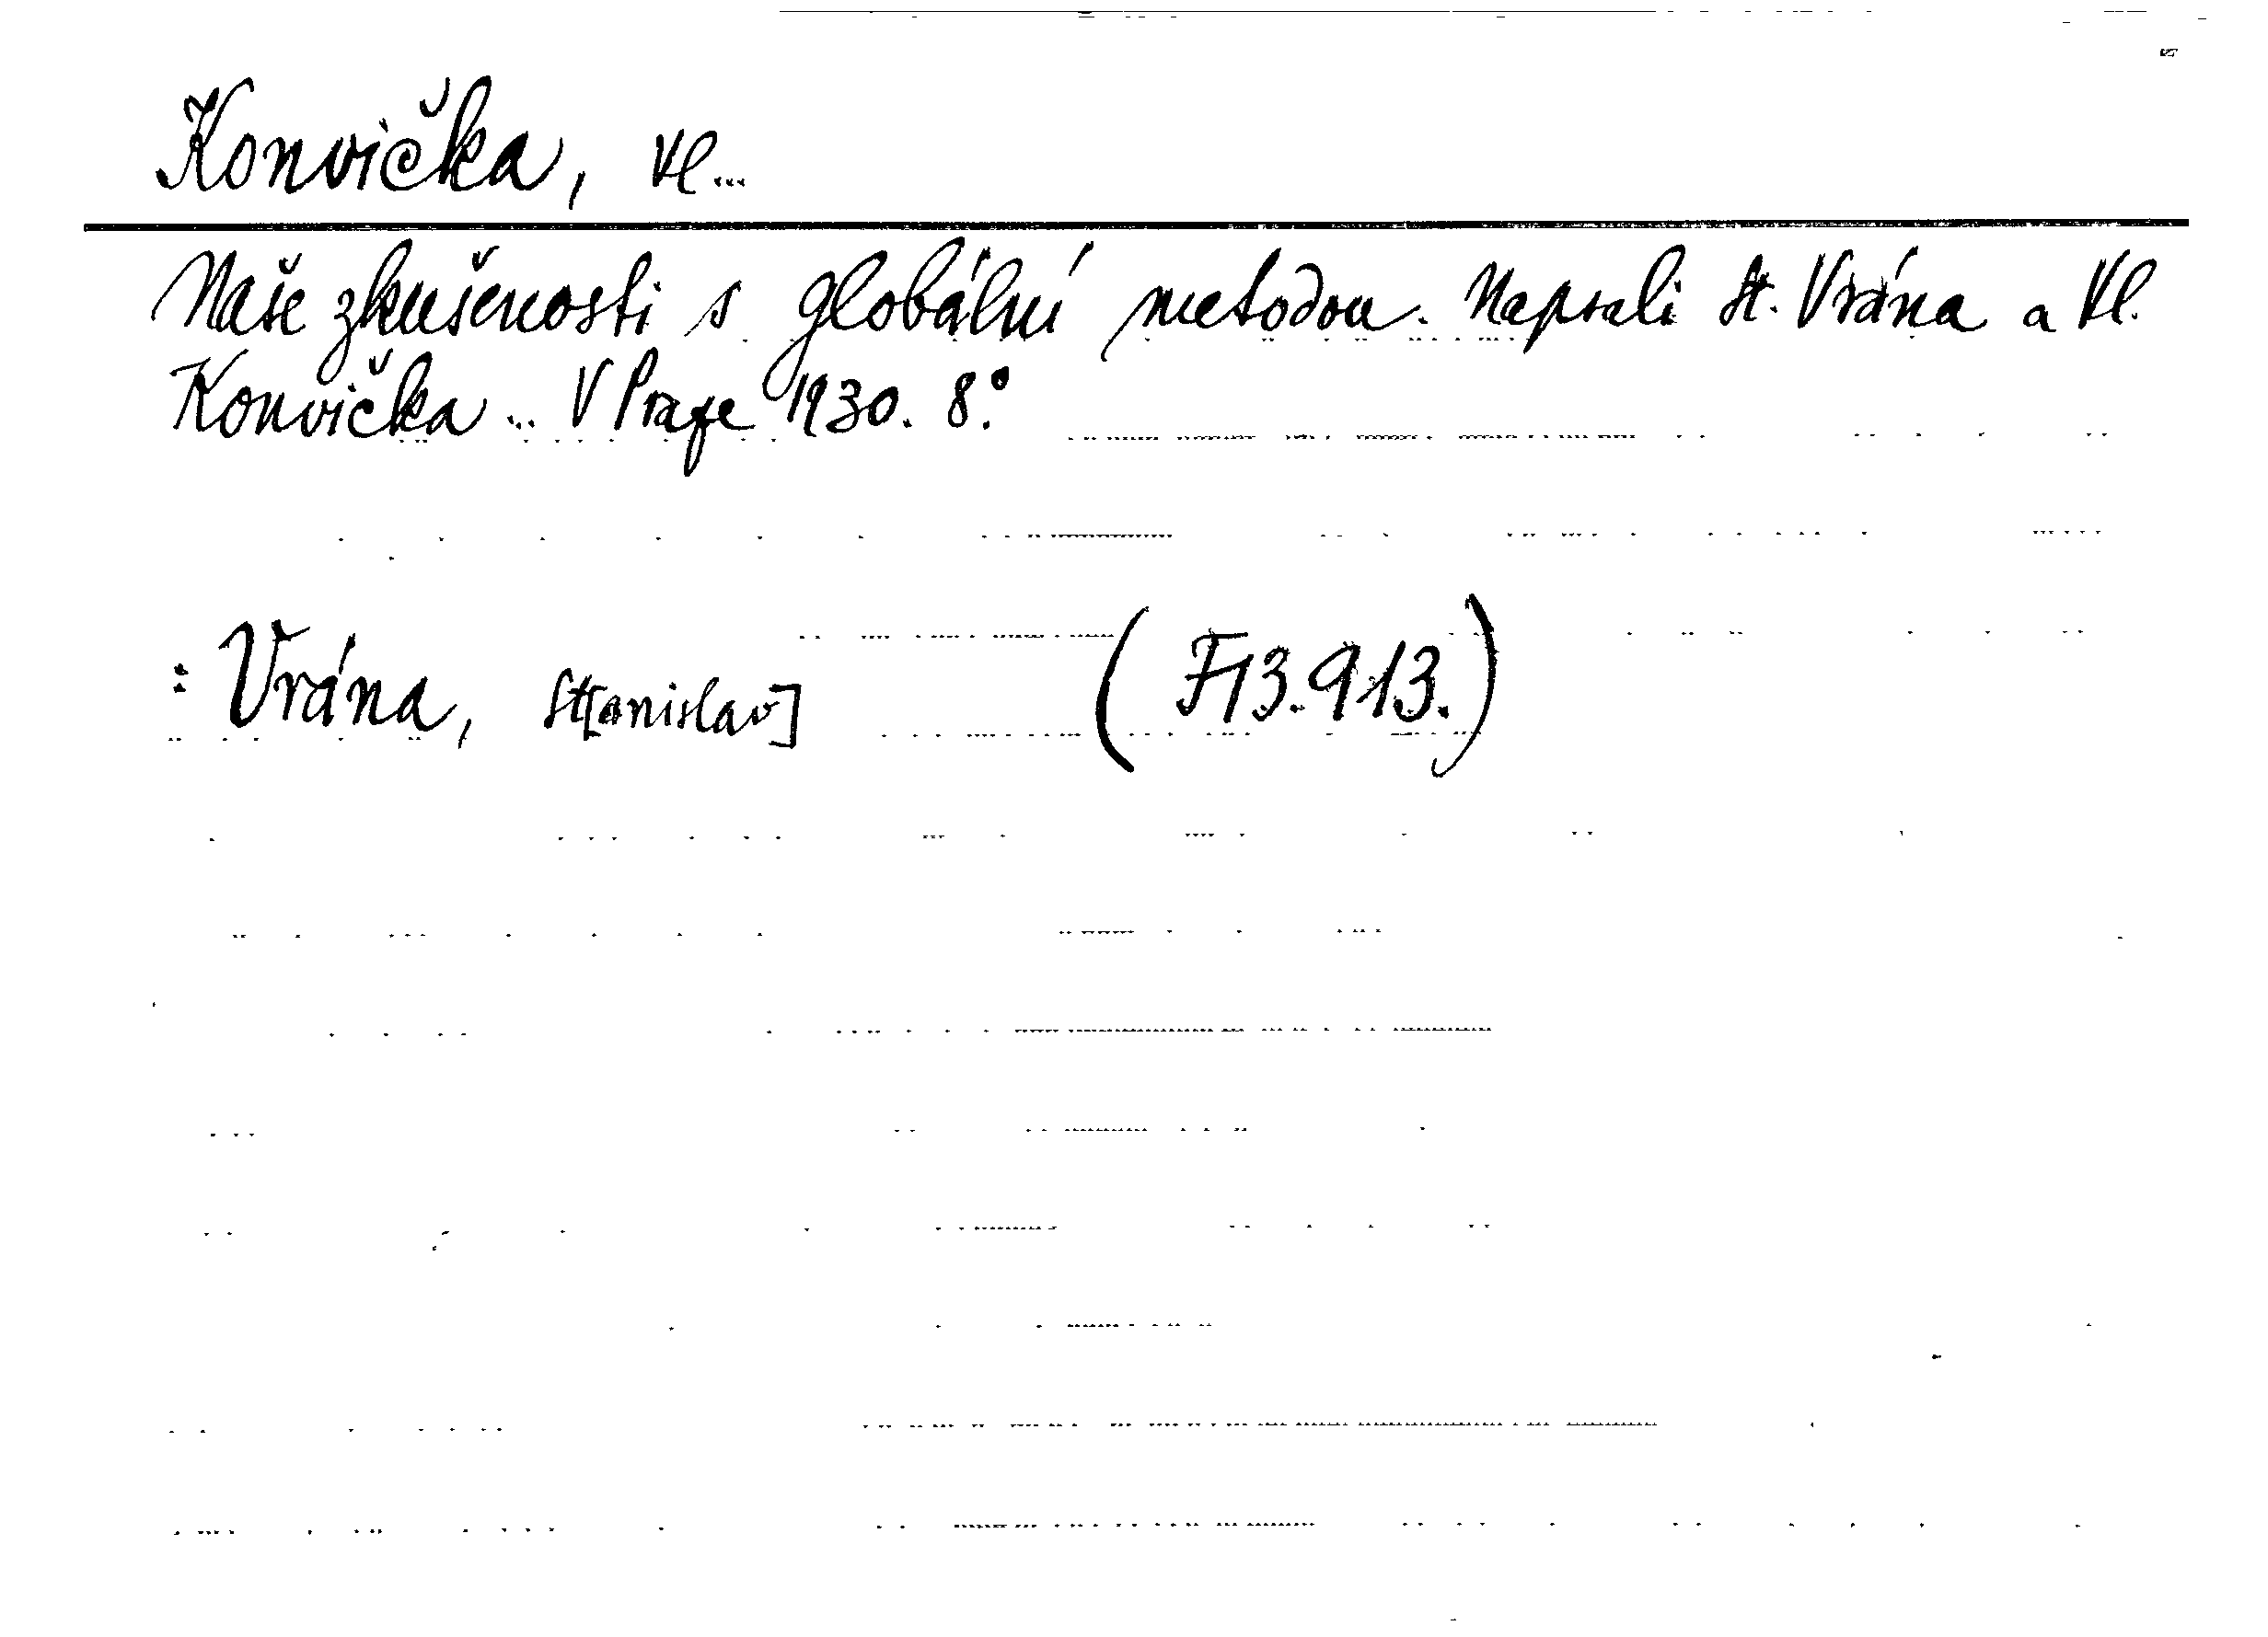 Konvička, Vl...
Naše zkušenosti s globální metodou. Napsali St. Vrána a Vl.
Konvička ... V Praze 1930. 8.°
: Vrána, St[anislav] (F13.913.)